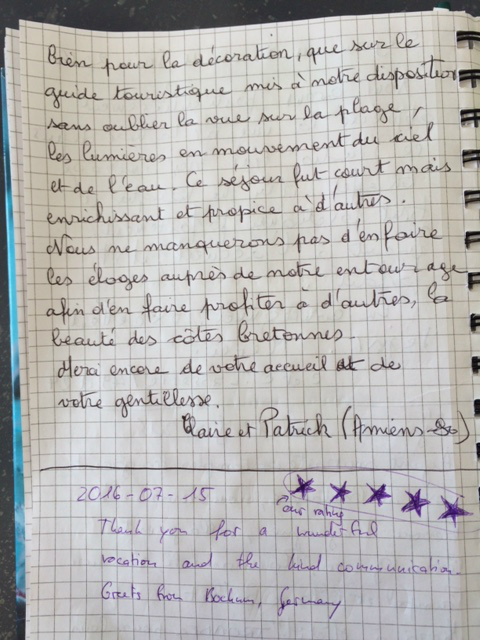 bien pour la décoration, que sur le
guide touristique mis à notre disposition
sans oublier la vue sur la plage,
les lumières en mouvement du ciel
et de l'eau. Ce séjour fut court mais
enrichissant et propice à d'autres.
Nous ne manquerons pas d'en faire
les éloges auprès de notre entourage
afin d'en faire profiter à d'autres, la
beauté des côtes bretonnes.
Merci encore de votre accueil et de
votre gentillesse.
Claire et Patrick (Amiens-80)
2016-07-15
our rating
Thank you for a wunderful
vacation and the kind communication.
Greets from Bochum, Germany